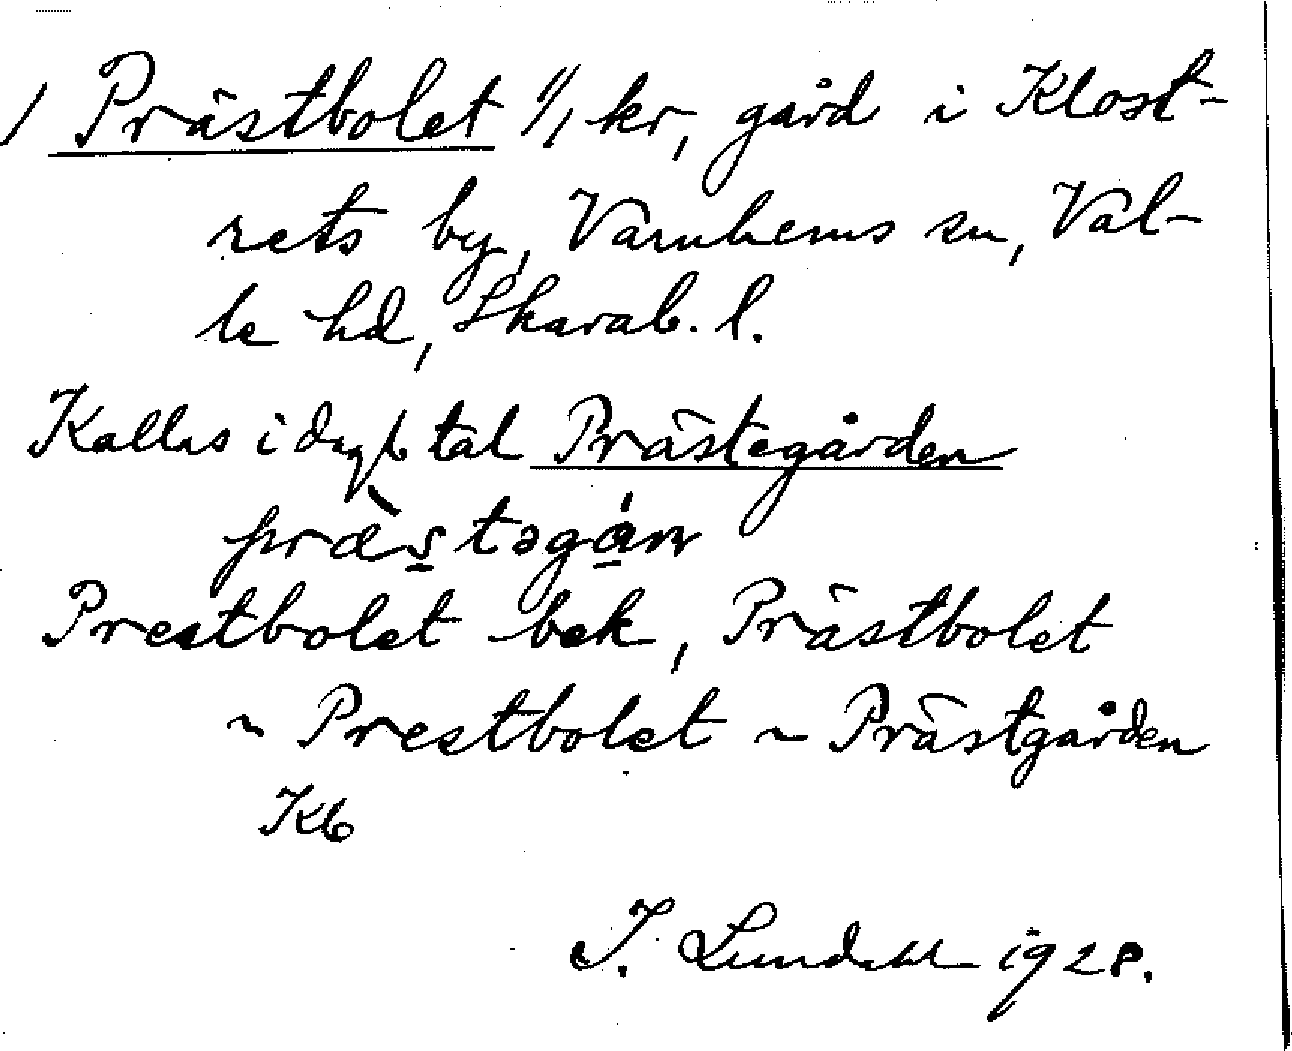 / Prästbolet 1/1 kr, gård i Klost-
rets by, Varnhems sn, Val-
le hd, Skarab. l.
Kallas i dagl tal Prästegården
præ̀stəgán
Prestbolet bek, Prästbolet
~ Prestbolet ~ Prästgården
Kb
I. Lundahl 1928.